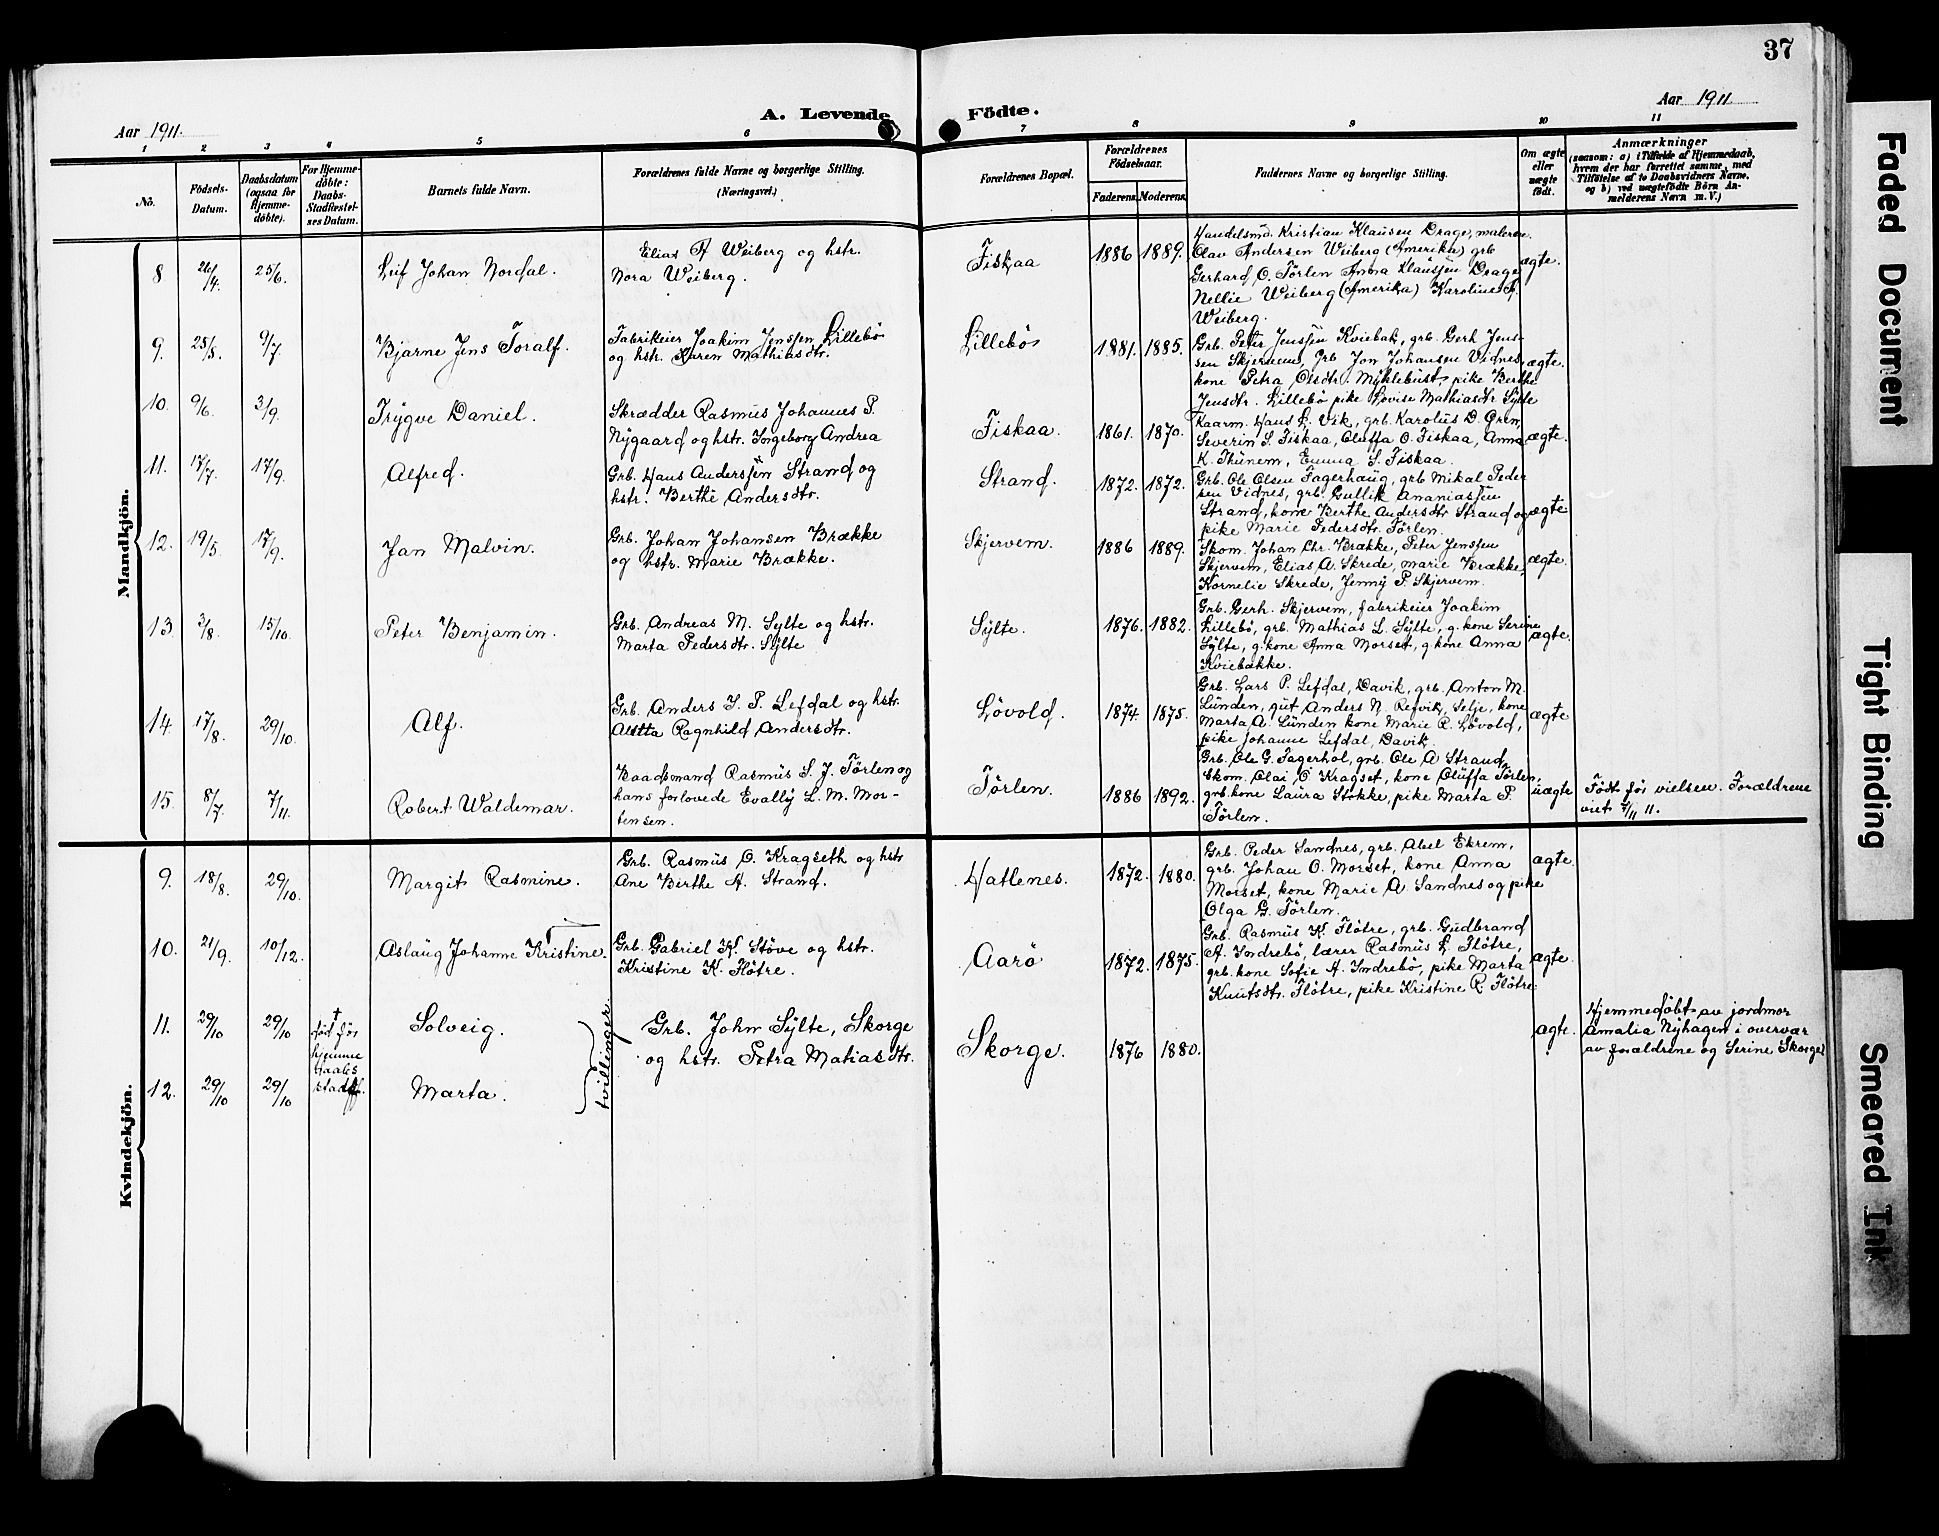 37
Aar 1911.
A. Levende
Födte.
Aar 1911
1 2 3 4 5 6 7 8 9 10 11
No.
Födsels-
Datum.
Daabsdatum
(ogsaa for
Hjemme-
döbte).
For Hjemme-
döbte:
Daabs-
Stadfæstel-
ses Datum.
Barnets fulde Navn.
Forældrenes fulde Navne og borgerlige Stilling.
(Næringsvei.)
Forældrenes Bopæl.
Forældrenes
Födselsaar.
Faderens.
Moderens.
Faddernes Navne og borgerlige Stilling.
Om ægte
eller
uægte
födt.
Anmærkninger
(saasom: a) i Tilfælde af Hjemmedaab,
hvem der har forrettet samme, med
Tilföielse af to Daabsvidners Navne,
og b) ved uægtefödte Börn An-
melderens Navn m. V.)
Mandkjön.
8 26/4. 25/6. Leif Johan Nordal.
Elias A Weiberg og hstr.
Nora Weiberg.
Fiskaa 1886 1889.
Handelsmd. Kristian Klausen Drage, maleren
Olav Andersen Weiberg (Amerika) grb
Gerhard O. Törlen Anna Klaussen Drage
Nellie Weiberg (Amerika) Karoline A.
Weiberg.
ægte.
9. 25/5. 9/7. Bjarne Jens Toralf.
Fabrikeier Joakim Jenssen Lillebö
og hstr. Karen Mathiasdtr.
Lillebö 1881. 1885.
Grb. Peter Jenssen Kviebak, grb. Gerh Jens-
sen Skjervem, Grb Jon Johansen Vidnes,
kone Petra Olsdtr. Myklebust, pike Berthe
Jensdtr. Lillebö pike Lovise Mathiasdtr Sylte
ægte.
10. 9/6. 3/9. Trygve Daniel.
Skrædder Rasmus Johannes P.
Nygaard og hstr. Ingeborg Andrea
Fiskaa. 1861. 1870.
Kaarm. Hans L. Vik, grb. Karolus D. Ören,
Severin S. Fiskaa, Oluffa O. Fiskaa, Anna
K. Thunem, Emma S. Fiskaa.
ægte.
11. 17/7. 17/9. Alfred.
Grb. Hans Anderssen Strand og
hstr. Berthe Andersdtr.
Strand. 1872. 1872.
Grb. Ole Olsen Fagerhaug, grb Mikal Peder
sen Vidnes, grb. Gullik Ananiassen
Strand, kone Berthe Andersdtr Strand og
pike Marie Pedersdtr. Törlen.
ægte
12. 19/5. 17/9. Jan Malvin.
Grb. Johan Johansen Brække
og hstr. Marie Brække.
Skjervem. 1886 1889.
Skom. Johan Chr. Brække, Peter Jenssen
Skjervem, Elias A. Skrede, marie Brække,
Kornelie Skrede, Jenny P. Skjervem.
ægte.
13. 3/8. 15/10. Peter Benjamin.
Grb. Andreas M. Sylte og hstr.
Marta Pedersdtr. Sylte
Sylte. 1876. 1882.
Grb. Gerh. Skjervem, fabrikeier Joakim
Lillebö, grb. Mathias L. Sylte, g. kone Serine
Sylte, g. kone Anna Morset, g kone Anna
Kviebakke.
ægte.
14. 17/8. 29/10. Alf.
Grb. Anders J. P. Lefdal og hstr.
Ragnhild Andersdtr.
Lövold. 1874. 1875.
Grb. Lars P. Lefdal, Davik, grb. Anton M.
Lunden, gut Anders N. Refvik, Selje, kone
Marta A. Lunden kone Marie R. Lövold,
pike Johanne Lefdal, Davik.
ægte
15. 8/7. 7/11. Robert Waldemar.
Baadsmand Rasmus S. J. Törlen og
hans forlovede Evally L. M. Mor-
tensen.
Törlen. 1886 1892.
Grb. Ole G. Fagerhol, grb. Ole A Strand,
Skom. Olai O Kragset, kone Oluffa Törlen,
grb. kone Laura Stokke, pike Marta P.
Törlen.
uægte
Födt för vielsen. Forældrene
viet 7/11 11.
Kvindekjön.
9. 18/8. 29/10. Margit Rasmine.
Grb. Rasmus O. Kragseth og hstr
Ane Birthe A. Strand.
Hatlenes. 1872. 1880.
Grb. Peder Sandnes, grb. Abel Ekrem,
grb. Johan O. Morset, kone Anna
Morset, kone Marie A. Sandnes og pike
Olga G. Törlen.
ægte.
10. 21/9. 10/12. Aslaug Johanne Kristine.
Grb. Gabriel K. Stöve og hstr.
Kristine K. Flötre.
Aarö 1872. 1875.
Grb. Rasmus K. Flötre, grb. Gudbrand
A. Indrebö, lærer Rasmus L. Flötre,
grb. kone Sofie A. Indrebö, pike Marta
Knutsdtr. Flötre, pike Kristine R. Flötre.
ægte.
11. 29/10 29/10 † död för
hjemme
daabs
stadff. Solveig.
tvillinger
Grb. John Sylte, Skorge
og hstr. Petra Matiasdtr.
Skorge. 1876 1880.
ægte.
Hjemmedöbt av jordmor
Amalia Nyhagen i overvær
av forældrene og Serine Skorge.
12. 29/10 29/10 Marta.
Faded Document
Tight Binding
Smeared Ink